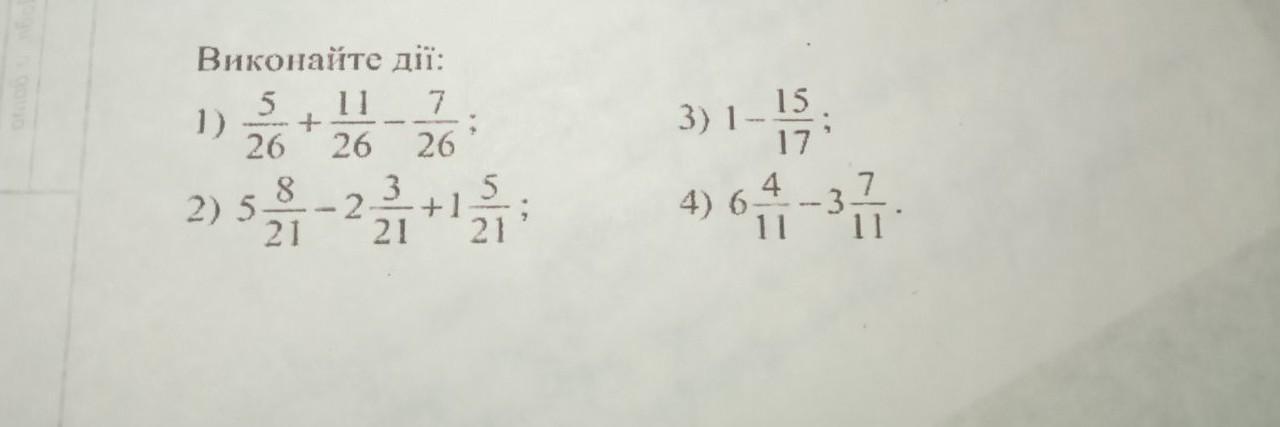 Виконайте дії:
1) 5/26 + 11/26 − 7/26;
2) 5 8/21 − 2 3/21 + 1 5/21;
3) 1 − 15/17;
4) 6 4/11 − 3 7/11.